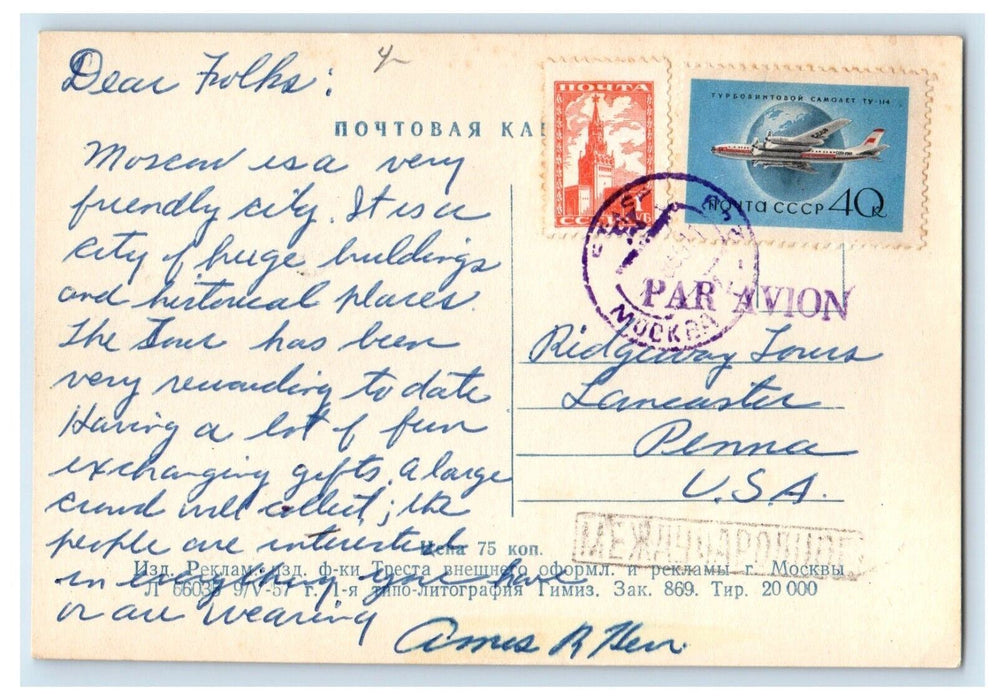 Dear Folks:
ПОЧТОВАЯ
Moscow is a very
friendly city. It is a
city of huge buildings
and historical places.
The Tour has been
very rewarding to date
Having a lot of fun
exchanging gifts. A large
crowd will collect; the
people are interested
in everything you have
or are wearing
Amos R Herr
ПОЧТА
СССР
ТУРБОВИНТОВОЙ САМОЛЕТ ТУ-114
ПОЧТА СССР 40 К
МОСКВА
PAR AVION
Ridgeway Tours
Lancaster
Penna
U.S.A.
МЕЖДУНАРОДНОЕ
Цена 75 коп.
Изд. Реклам. изд. ф-ки Треста внешнего оформл. и рекламы г. Москвы
Л 66035 9/V-57 г. 1-я типо-литография Гимиз. Зак. 869. Тир. 20 000